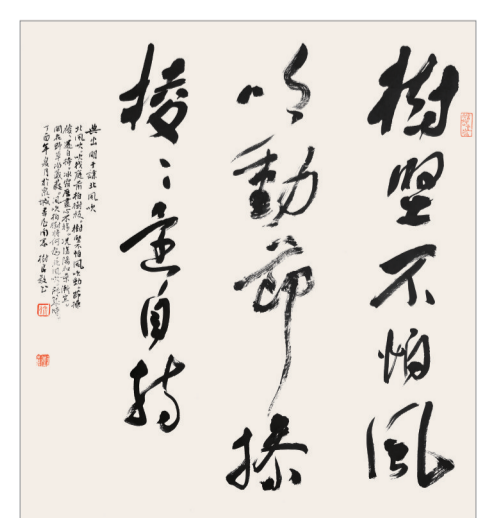 樹堅不怕風
吹動節操
棱棱還自持
典出 明于謙北風吹
北風吹，吹我庭前柏樹枝。樹堅不怕風吹動，節操
棱棱還自持，冰霜歷盡心不移。況復陽和景漸宜，
閑花野草尚葳蕤，風吹柏樹將何為？北風吹，能幾時。